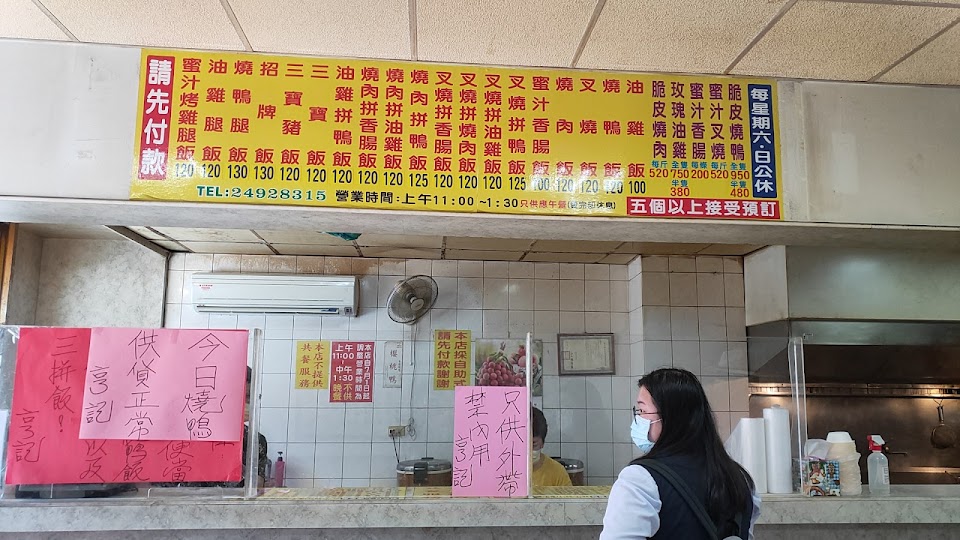 請先付款
蜜汁烤雞腿飯 120
油雞腿飯 120
燒鴨腿飯 130
招牌飯 130
三寶豬飯 120
三寶飯 120
油雞拼鴨飯 120
燒肉拼香腸飯 120
燒肉拼油雞飯 120
燒肉拼鴨飯 125
叉燒拼香腸飯 120
叉燒拼燒肉飯 120
叉燒拼油雞飯 120
叉燒拼鴨飯 125
蜜汁香腸飯 100
燒肉飯 120
叉燒飯 120
燒鴨飯 120
油雞飯 100
脆皮燒肉 每斤520
玫瑰油雞 全隻750 半隻380
蜜汁香腸 200
蜜汁叉燒 每斤520
脆皮燒鴨 全隻950 半隻480
每星期六·日公休
TEL:24928315 營業時間:上午11:00~1:30只供應午餐
五個以上接受預訂
今日燒鴨
供貨正常
亨記
三拼飯!
亨記
鴨飯
便當
本店不提供
共餐服務
本店自7月1日
調整營業時間為
上午11:00
中午1:30
晚餐不供
本店採自助式
請先付款謝謝
只供外帶
禁內用
亨記